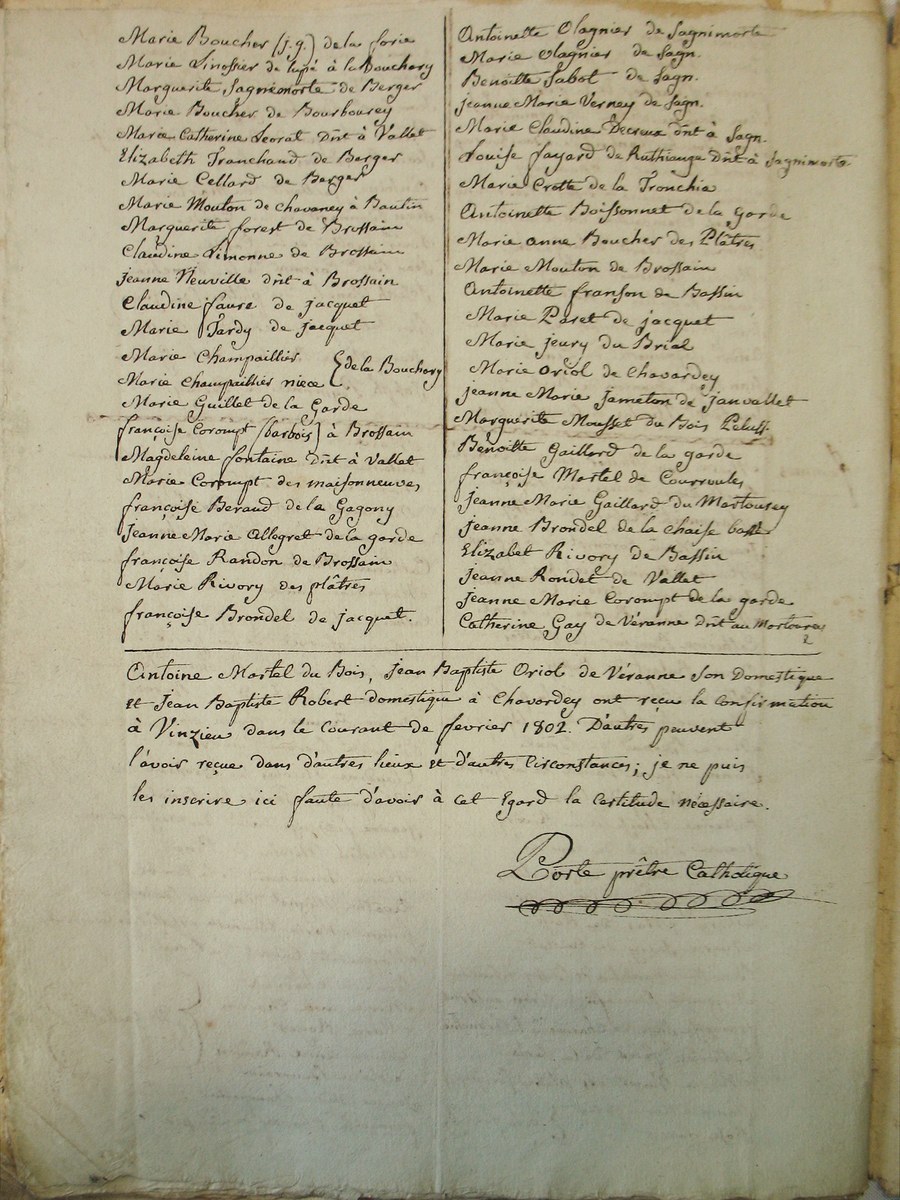 Marie Boucher (j.g.) de la forie
Marie Linossier de lupé à la Bouchery
Marguerite Sagnemorte de Berger
Marie Boucher de Bourbourey
Marie Catherine Seorat dnt à Vallet
Elizabeth Tranchand de Berger
Marie Cellard de Berger
Marie Mouton de Chavaney à Bautin
Marguerite forest de Brossain
Claudine Limonne de Brossain
Jeanne Neuville dnt à Brossain
Claudine faure de jacquet
Marie Tardy de jacquet
Marie Champaillier
Marie Champaillier niece } de la Bouchery
Marie Guillet de la Garde
françoise Corompt (barbois) à Brossain
Magdeleine fontaine dnt à Vallet
Marie Corompt des maisonneuves
françoise Beraud de la Gagony
Jeanne Marie Allegret de la garde
françoise Randon de Brossain
Marie Rivory des plâtres
françoise Brondel de jacquet.
Antoinette Olagnier de Sagnimorte
Marie Olagnier de Sagn.
Benoitte Sabot de Sagn.
jeanne Marie Verney de Sagn.
Marie Claudine Decreux dnt à Sagn.
Louise fayard de Ruthiange dnt à Sagnimorte
Marie Crotte de la Tronchia
Antoinette Boissonnet de la garde
Marie anne Boucher des Plâtres
Marie Mouton de Brossain
Antoinette franson de Bassin
Marie Paret de jacquet
Marie jeury du Briel
Marie Oriol de Chavardey
jeanne Marie Jameton de janvallet
Marguerite Mousset du Bois Peluss.
Benoitte Gaillard de la garde
françoise Martel de Courroules
Jeanne Marie Gaillard du Mortourey
jeanne Brondel de la chaise basse
Elizabet Rivory de Bassin
Jeanne Rondet de Vallet
Jeanne Marie Corompt de la garde
Catherine Gay de Véranne dnt au Mortourey
Antoine Martel du Bois, Jean Baptiste Oriol de Véranne son Domestique
et Jean Baptiste Robert domestique à Chavardey ont reçu la Confirmation
à Vinzieu dans le Courant de fevrier 1802. D'autres peuvent
l'avoir reçue dans d'autres lieux et d'autres Circonstances; je ne puis
les inscrire ici faute d'avoir à cet Egard la Certitude nécessaire.
Porte prêtre Catholique